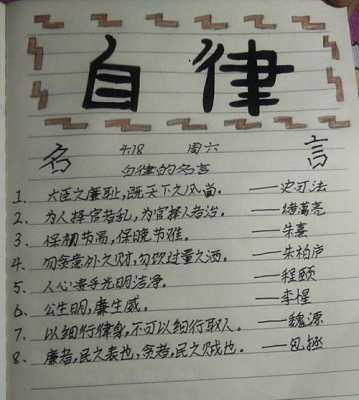 自律
名 4.18 周六 言
自律的名言
1、大臣之廉耻,既天下之风尚。——史可法
2、为人择官者乱,为官择人者治。——诸葛亮
3、保初节易,保晚节难。——朱熹
4、勿贪意外之财,勿饮过量之酒。——朱柏庐
5、人心要乎光明洁净。——程颐
6、公生明,廉生威。——李惺
7、以细行律身,不可以细行取人。——魏源
8、廉者,民之表也,贪者,民之贼也。——包拯